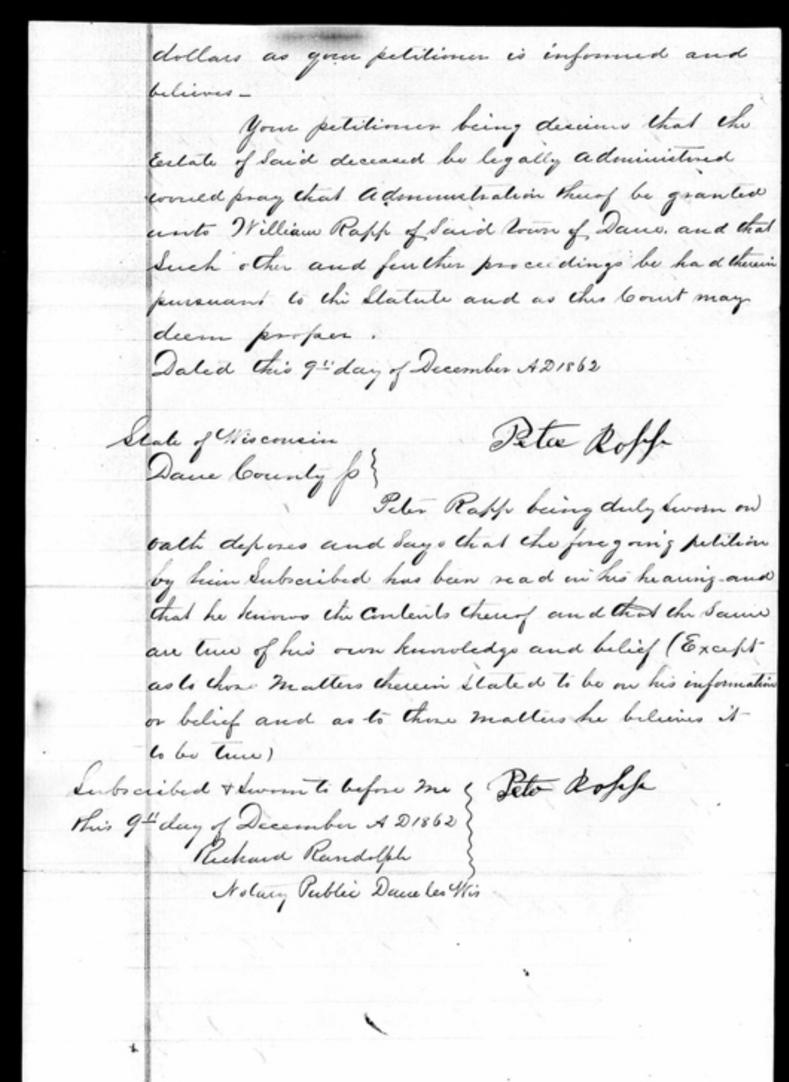 dollars as your petitioner is informed and
believes -
Your petitioner being desirous that the
Estate of Said deceased be legally administered
would pray that administration thereof be granted
unto William Rapp of Said town of Dane. and that
such other and further proceedings be had therein
pursuant to the Statute and as this Court may
deem proper.
Dated this 9th day of December AD 1862
Peter Rapp
State of Wisconsin
Dane County ss
Peter Rapp being duly sworn on
oath deposes and says that the foregoing petition
by him Subscribed has been read in his hearing and
that he knows the contents thereof and that the Same
are true of his own knowledge and belief (Except
as to those Matters therein stated to be on his information
or belief and as to those matters he believes it
to be true)
Subscribed & Sworn to before me
this 9th day of December AD 1862
Peter Rapp
Richard Randolph
Notary Public Dane Co Wis